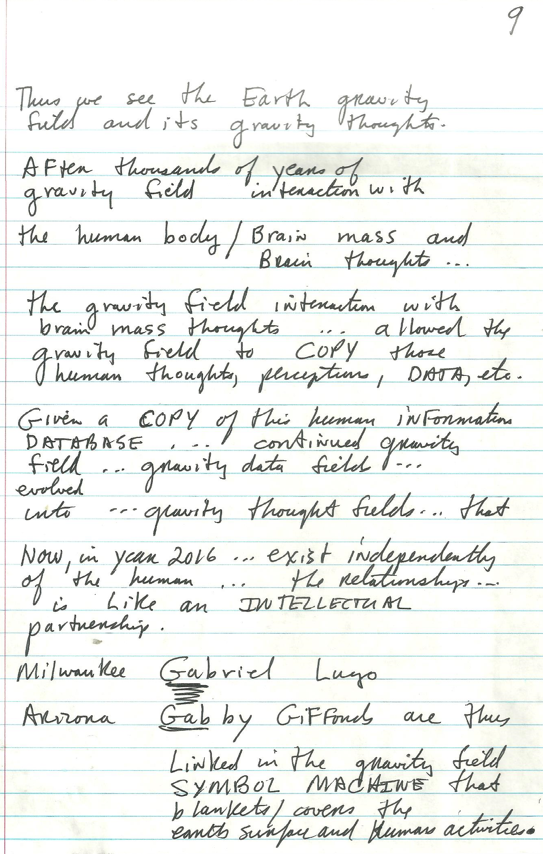 9
Thus we see the Earth gravity
field and its gravity thoughts.
AFTer thousands of years of
gravity field interaction with
the human body / Brain mass and
Brain thoughts ...
the gravity field interaction with
brain mass thoughts ... allowed the
gravity field to COPY those
human thoughts, perceptions, DATA, etc.
Given a COPY of this human inFormation
DATABASE .... continued gravity
field ... gravity data field ...
evolved
into ... gravity thought fields... that
Now, in year 2016 ... exist independently
of the human ... the relationships...
is Like an INTELLECTUAL
partnership.
Milwaukee Gabriel Lugo
Arizona Gabby GiFFords are thus
Linked in the gravity field
SYMBOL MACHINE that
blankets/covers the
earth surface and human activities.